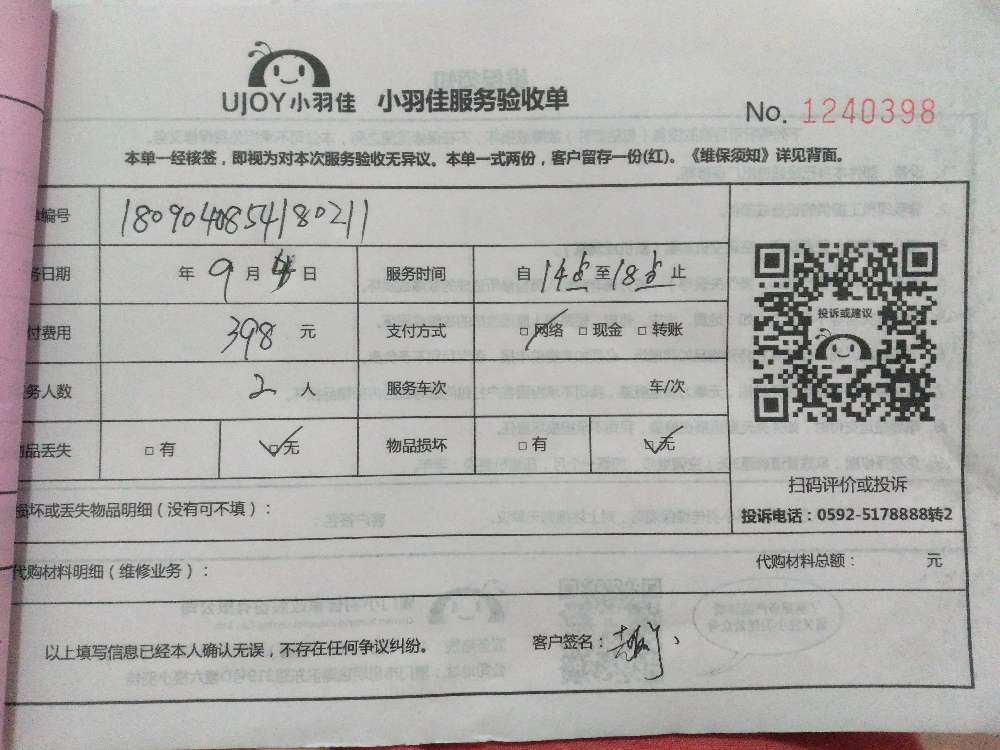 UJOY小羽佳 小羽佳服务验收单
No. 1240398
本单一经核签，即视为对本次服务验收无异议。本单一式两份，客户留存一份(红)。《维保须知》详见背面。
编号 1809040854180211
日期 年 9 月 4 日 服务时间 自 14点 至 18点 止
付费用 398 元 支付方式 □网络 □现金 □转账
务人数 2 人 服务车次 车/次
品丢失 □有 □无 物品损坏 □有 □无
投诉或建议
扫码评价或投诉
投诉电话：0592-5178888转2
损坏或丢失物品明细（没有可不填）：
代购材料明细（维修业务）： 代购材料总额： 元
以上填写信息已经本人确认无误，不存在任何争议纠纷。 客户签名：